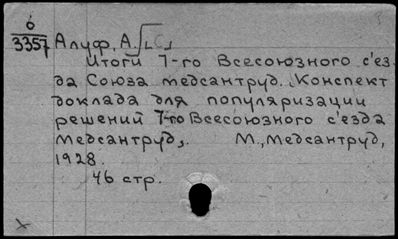 6
3357
Алуф, А. [С.]
Итоги 7-го Всесоюзного с'ез-
да Союза медсантруд. Конспект
доклада для популяризации
решений 7-го Всесоюзного с'езда
медсантруд.     М., Медсантруд,
1928.
46 стр.